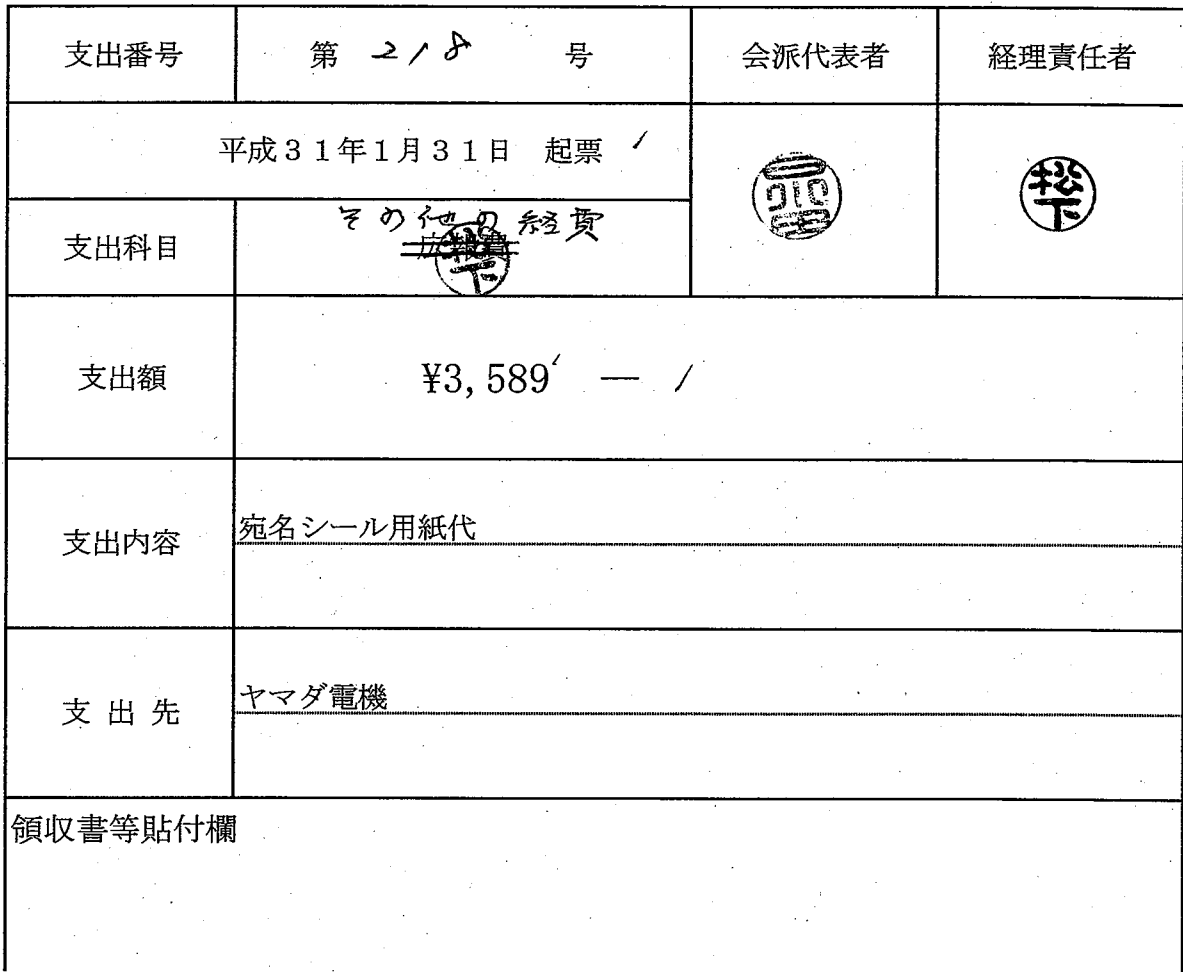 支出番号 第 218 号 会派代表者 経理責任者
平成31年1月31日 起票
松下
その他の経費
支出科目 広報費
松下
支出額 ¥3,589 ―
支出内容 宛名シール用紙代
支出先 ヤマダ電機
領収書等貼付欄